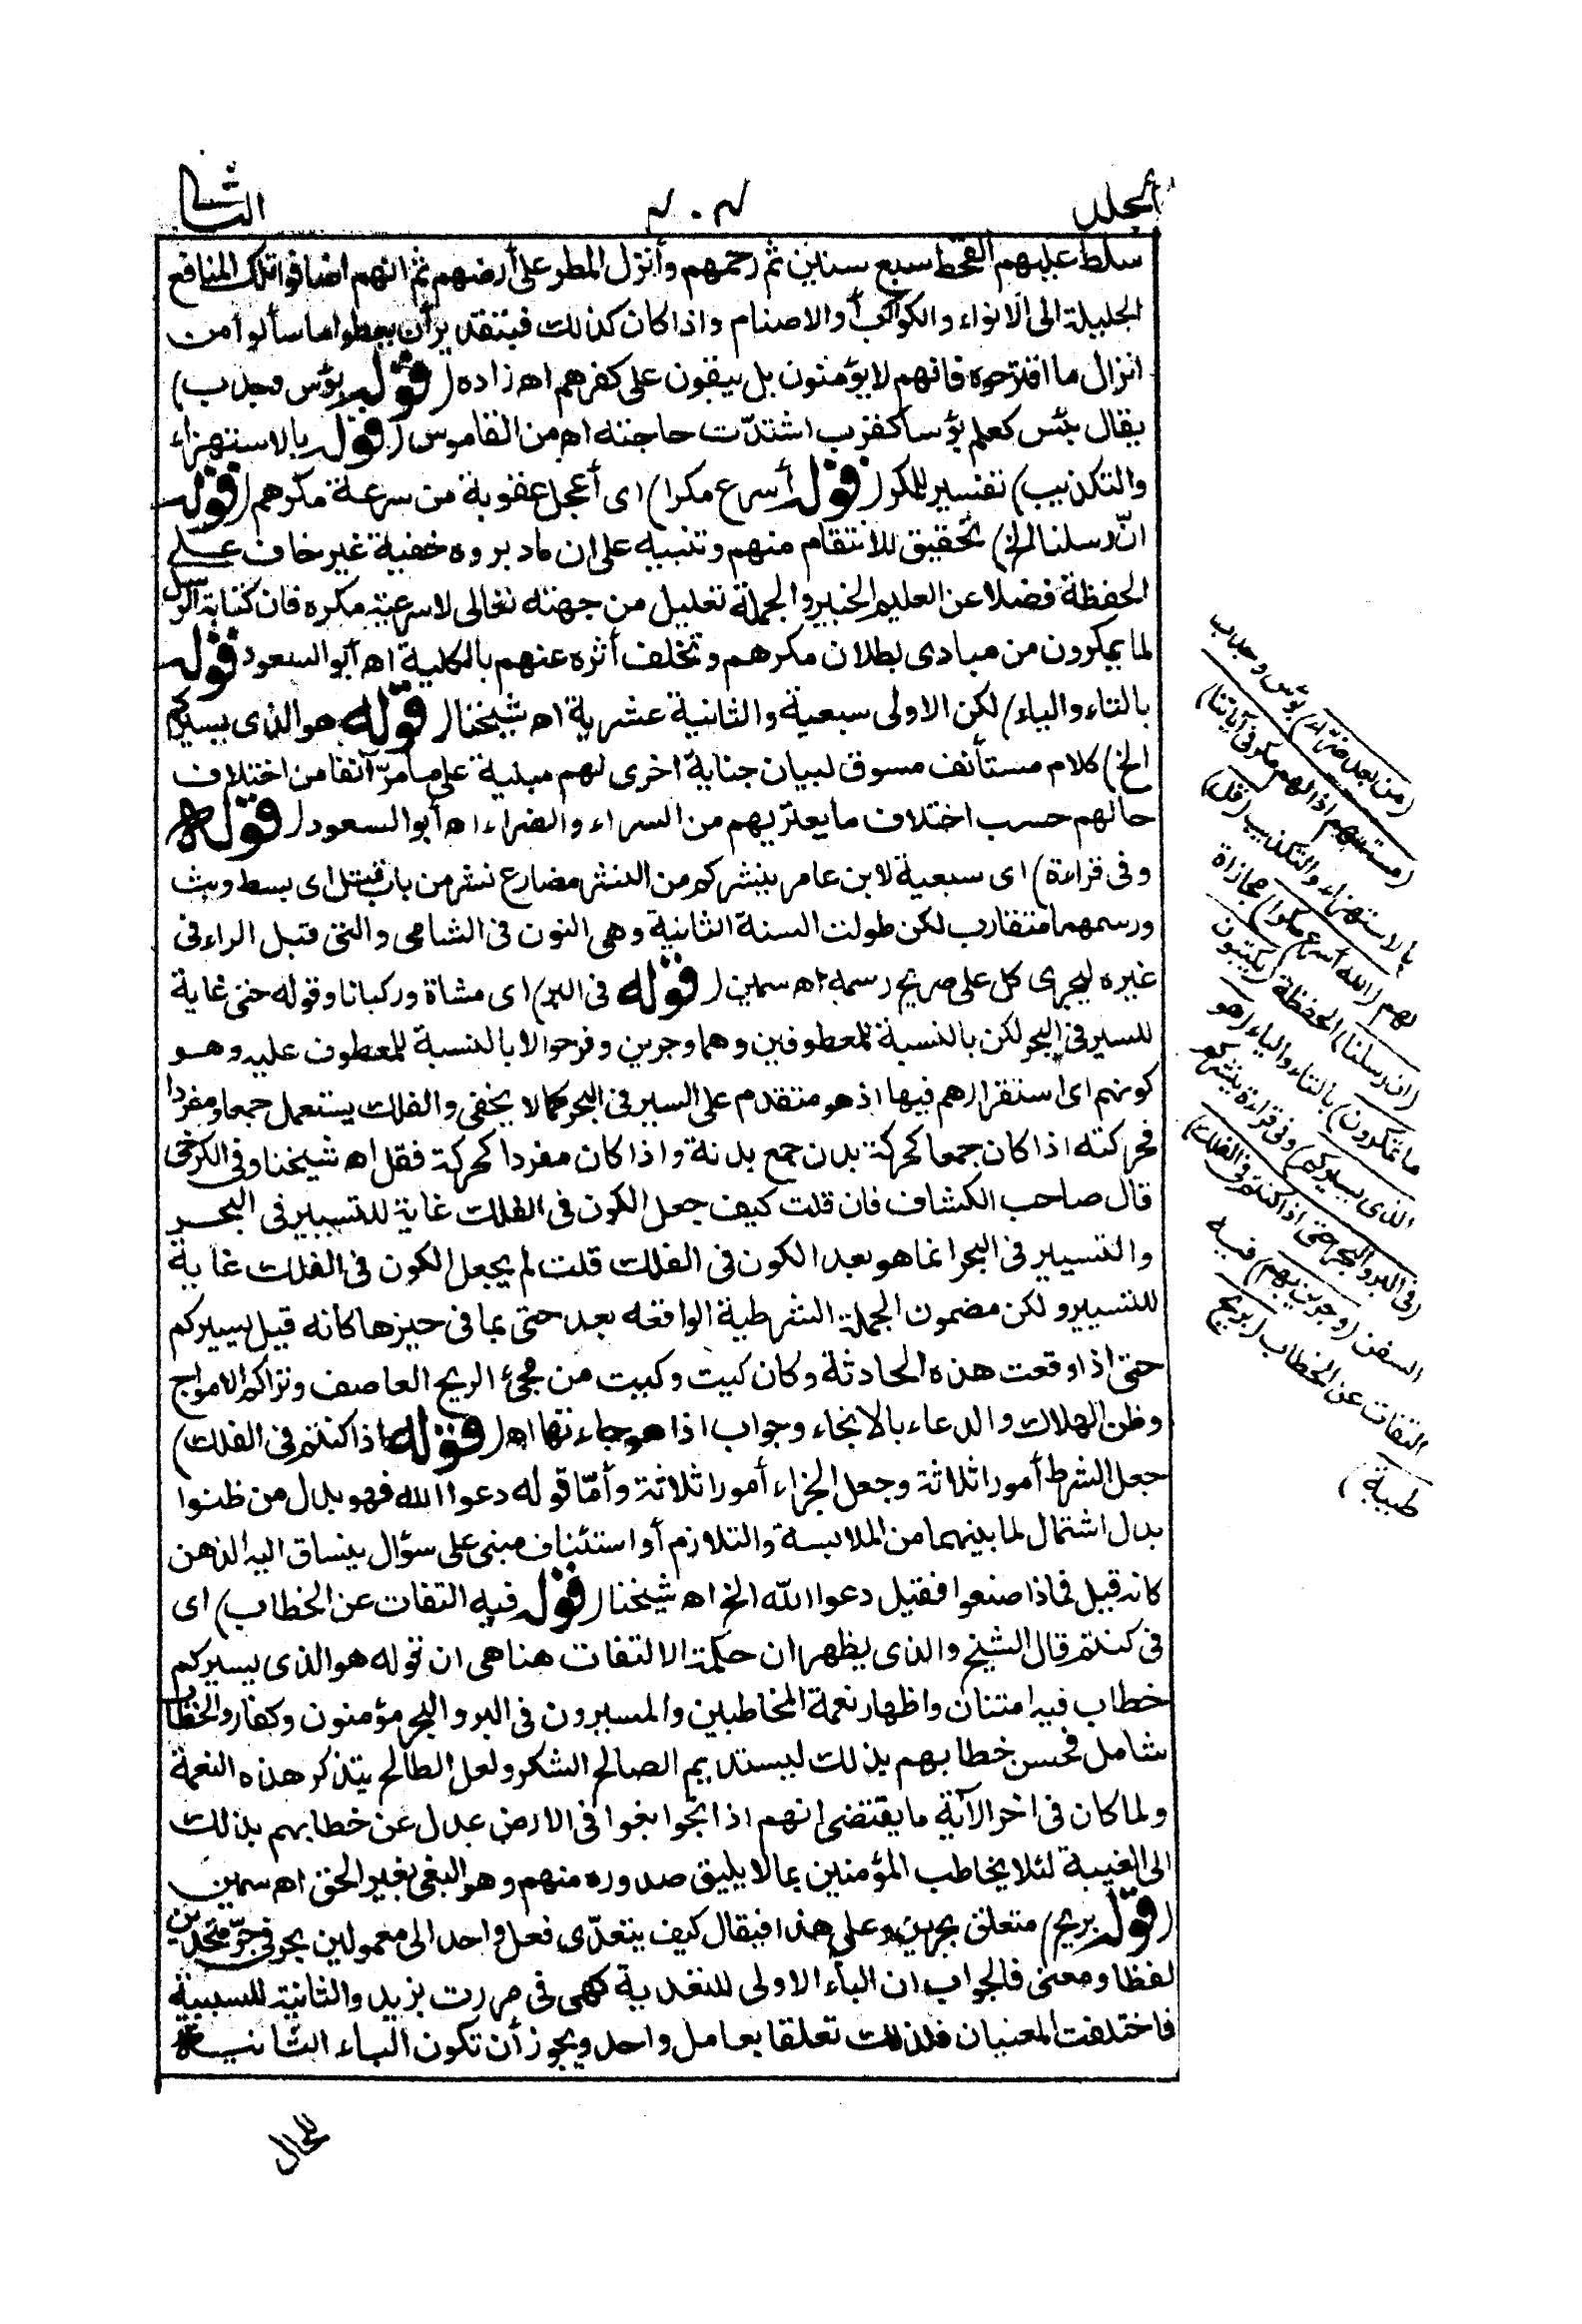 الجلد
٤٠٤
الثانى
سلط عليهم القحط سبع سنين ثم رحمهم وأنزل المطر على أرضهم ثم انهم اضافوا تلك المنافع
الجليلة الى الانواء والكواكب أو الاصنام واذا كان كذلك فبتقدير أن يعطوا ما سألوا من
انزال ما اقترحوه فانهم لا يؤمنون بل يبقون على كفرهم اه زاده (قوله بؤس وجدب)
يقال بئس كعلم بؤسا كقرب اشتدّت حاجته اه من القاموس (قوله بالاستهزاء
والتكذيب) تفسير للمكر (قوله أسرع مكرا) اى أعجل عقوبة من سرعة مكرهم (قوله
انّ رسلنا الخ) تحقيق للانتقام منهم وتنبيه على ان ما دبروه خفية غير خاف على
الحفظة فضلا عن العليم الخبير والجملة تعليل من جهته تعالى لاسرعية مكره فان كتابة الرسل
لما يمكرون من مبادى بطلان مكرهم وتخلف أثره عنهم بالكلية اه أبو السعود قوله
بالتاء والياء) لكن الاولى سبعية والثانية عشرية اه شيخنا (قوله هو الذى يسيركم
الخ) كلام مستأنف مسوق لبيان جناية اخرى لهم مبنية على ما مرّ آنفا من اختلاف
حالهم حسب اختلاف ما يعتريهم من السراء والضراء اه أبو السعود (قوله
وفى قراءة) اى سبعية لابن عامر ينشركم من النشر مضارع نشر من باب قتل اى بسط وبث
ورسمهما متقارب لكن طولت السنة الثانية وهى النون فى الشامى والتى قبل الراء فى
غيره ليجرى كل على صريح رسمه اه سمين (قوله فى البر) اى مشاة وركبانا وقوله حتى غاية
للسير فى البحر لكن بالنسبة للمعطوفين وهما وجرين وفرحوا لا بالنسبة للمعطوف عليه وهو
كونهم اى استقرارهم فيها اذ هو متقدم على السير فى البحر كما لا يخفى والفلك يستعمل جمعا ومفردا
فحركته اذا كان جمعا كحركة بدن جمع بدنة واذا كان مفردا كحركة قفل اه شيخنا وفى الكرخى
قال صاحب الكشاف فان قلت كيف جعل الكون فى الفلك غاية للتسيير فى البحر
والتسيير فى البحر انما هو بعد الكون فى الفلك قلت لم يجعل الكون فى الفلك غاية
للتسيير ولكن مضمون الجملة الشرطية الواقعه بعد حتى بما فى حيزها كانه قيل يسيركم
حتى اذا وقعت هذه الحادثة وكان كيت وكيت من مجئ الريح العاصف وتراكم الامواج
وظن الهلاك والدعاء بالانجاء وجواب اذا هو جاءتها اه (قوله اذا كنتم فى الفلك)
جعل الشرط أمورا ثلاثة وجعل الجزاء أمورا ثلاثة وأمّا قوله دعوا الله فهو بدل من ظنوا
بدل اشتمال لما بينهما من الملابسة والتلازم أو استئناف مبنى على سؤال ينساق اليه الذهن
كانه قيل فماذا صنعوا فقيل دعوا الله الخ اه شيخنا (قوله فيه التفات عن الخطاب) اى
فى كنتم قال الشيخ والذى يظهر ان حكمة الالتفات هنا هى ان قوله هو الذى يسيركم
خطاب فيه امتنان واظهار نعمة المخاطبين والمسيرون فى البر والبحر مؤمنون وكفار والخطاب
شامل فحسن خطابهم بذلك ليستديم الصالح الشكر ولعل الطالح يتذكر هذه النعمة
ولما كان فى اخر الآية ما يقتضى انهم اذا نجوا بغوا فى الارض عدل عن خطابهم بذلك
الى الغيبة لئلا يخاطب المؤمنين بما لا يليق صدوره منهم وهو البغى بغير الحق اه سمين
(قوله بريح) متعلق بجرين وعلى هذا فيقال كيف يتعدّى فعل واحد الى معمولين بحرفى جرّ متحدين
لفظا ومعنى فالجواب ان الباء الاولى للتعدية كهى فى مررت بزيد والثانية للسببية
فاختلفت المعنيان فلذلك تعلقا بعامل واحد ويجوز أن تكون الباء الثانية
للحال
(من بعد ضراء) بؤس وجدب
(مستهم اذا لهم مكر فى آياتنا)
بالاستهزاء والتكذيب (قل)
لهم (الله أسرع مكرا) مجازاة
(ان رسلنا) الحفظة (يكتبون
ما تمكرون) بالتاء والياء (هو
الذى يسيركم) وفى قراءة ينشركم
(فى البر والبحر حتى اذا كنتم فى الفلك)
السفن (وجرين بهم) فيه
التفات عن الخطاب (بريح
طيبة)